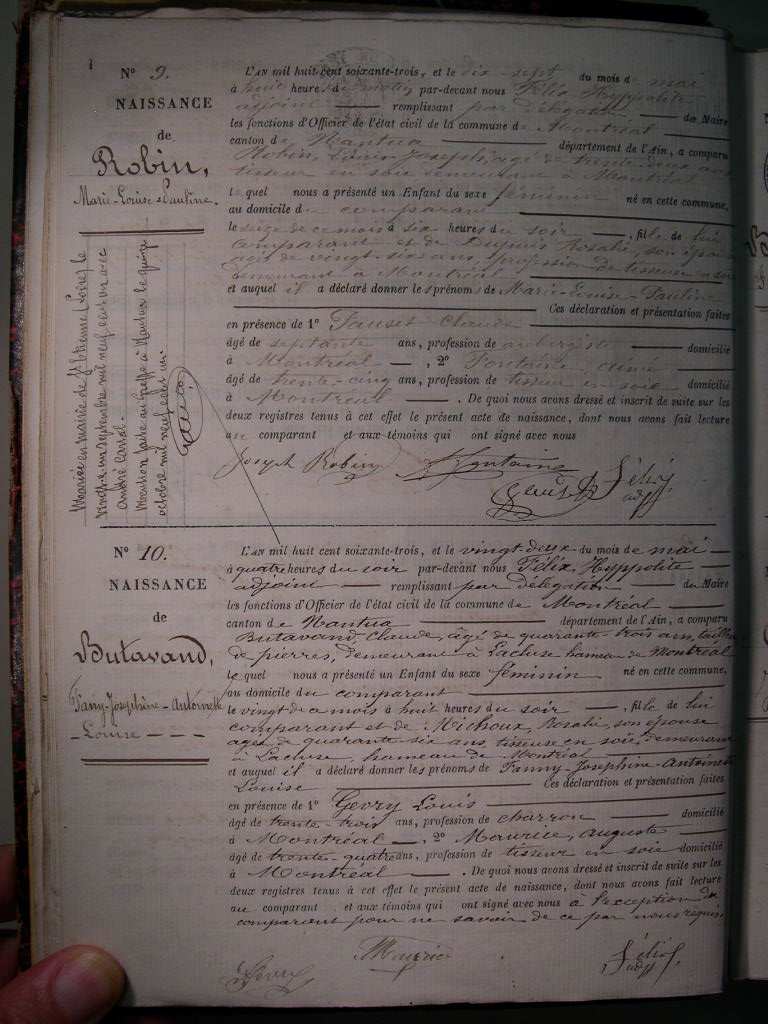 1
N° 9.
NAISSANCE
de
Robin,
Marie-Louise-Pauline.
Mariée en mairie de St Etienne (Loire) le
vingt-un septembre mil neuf cent un avec
André Carrol.
Mention faite au Greffe à Nantua le quinze
octobre mil neuf cent un.
L'AN mil huit cent soixante-trois, et le dix-sept du mois de mai
à huit heures du matin, par-devant nous Félix Hyppolite
adjoint remplissant par délégation de Maire
les fonctions d'Officier de l'état civil de la commune de Montréal
canton de Nantua département de l'Ain, a comparu
Robin, Louis Joseph, agé de trente-deux ans
tisseur en soie demeurant à Montréal
lequel nous a présenté un Enfant du sexe féminin né en cette commune,
au domicile du comparant
le seize de ce mois à six heures du soir, fille de lui
comparant et de Dupuis Rosalie, son épouse
agée de vingt-six ans, profession de tisseuse en soie
demeurant à Montréal
et auquel il a déclaré donner les prénoms de Marie-Louise-Pauline
Ces déclaration et présentation faites
en présence de 1° Claude
âgé de septante ans, profession de aubergiste domicilié
à Montréal, 2° Fontaine, Aimé
âgé de trente-cinq ans, profession de tisseur en soie domicilié
à Montréal. De quoi nous avons dressé et inscrit de suite sur les
deux registres tenus à cet effet le présent acte de naissance, dont nous avons fait lecture
au comparant et aux témoins qui ont signé avec nous
Joseph Robin Fontaine
Félix
adjt
N° 10.
NAISSANCE
de
Butavand,
Fany-Joséphine-Antoinette
-Louise - - -
L'AN mil huit cent soixante-trois, et le vingt-deux du mois de mai
à quatre heures du soir par-devant nous Félix, Hyppolite
adjoint remplissant par délégation de Maire
les fonctions d'Officier de l'état civil de la commune de Montréal
canton de Nantua département de l'Ain, a comparu
Butavand, Claude, âgé de quarante trois ans, tailleur
de pierres, demeurant à Lacluse hameau de Montréal
lequel nous a présenté un Enfant du sexe féminin né en cette commune,
au domicile du comparant
le vingt de ce mois à huit heures du soir, fille de lui
comparant et de Michoux, Rosalie, son épouse
agée de quarante six ans, tisseuse en soie, demeurant
à Lacluse, hameau de Montréal
et auquel il a déclaré donner les prénoms de Fanny-Joséphine-Antoinette
Louise Ces déclaration et présentation faites
en présence de 1° Gevry Louis
âgé de trente-trois ans, profession de charron domicilié
à Montréal, 2° Maurice, auguste
âgé de trente-quatre ans, profession de tisseur en soie domicilié
à Montréal. De quoi nous avons dressé et inscrit de suite sur les
deux registres tenus à cet effet le présent acte de naissance, dont nous avons fait lecture
au comparant et aux témoins qui ont signé avec nous à l'exception du
comparant pour ne savoir de ce par nous requis
Gevry Maurice Félix
adjt